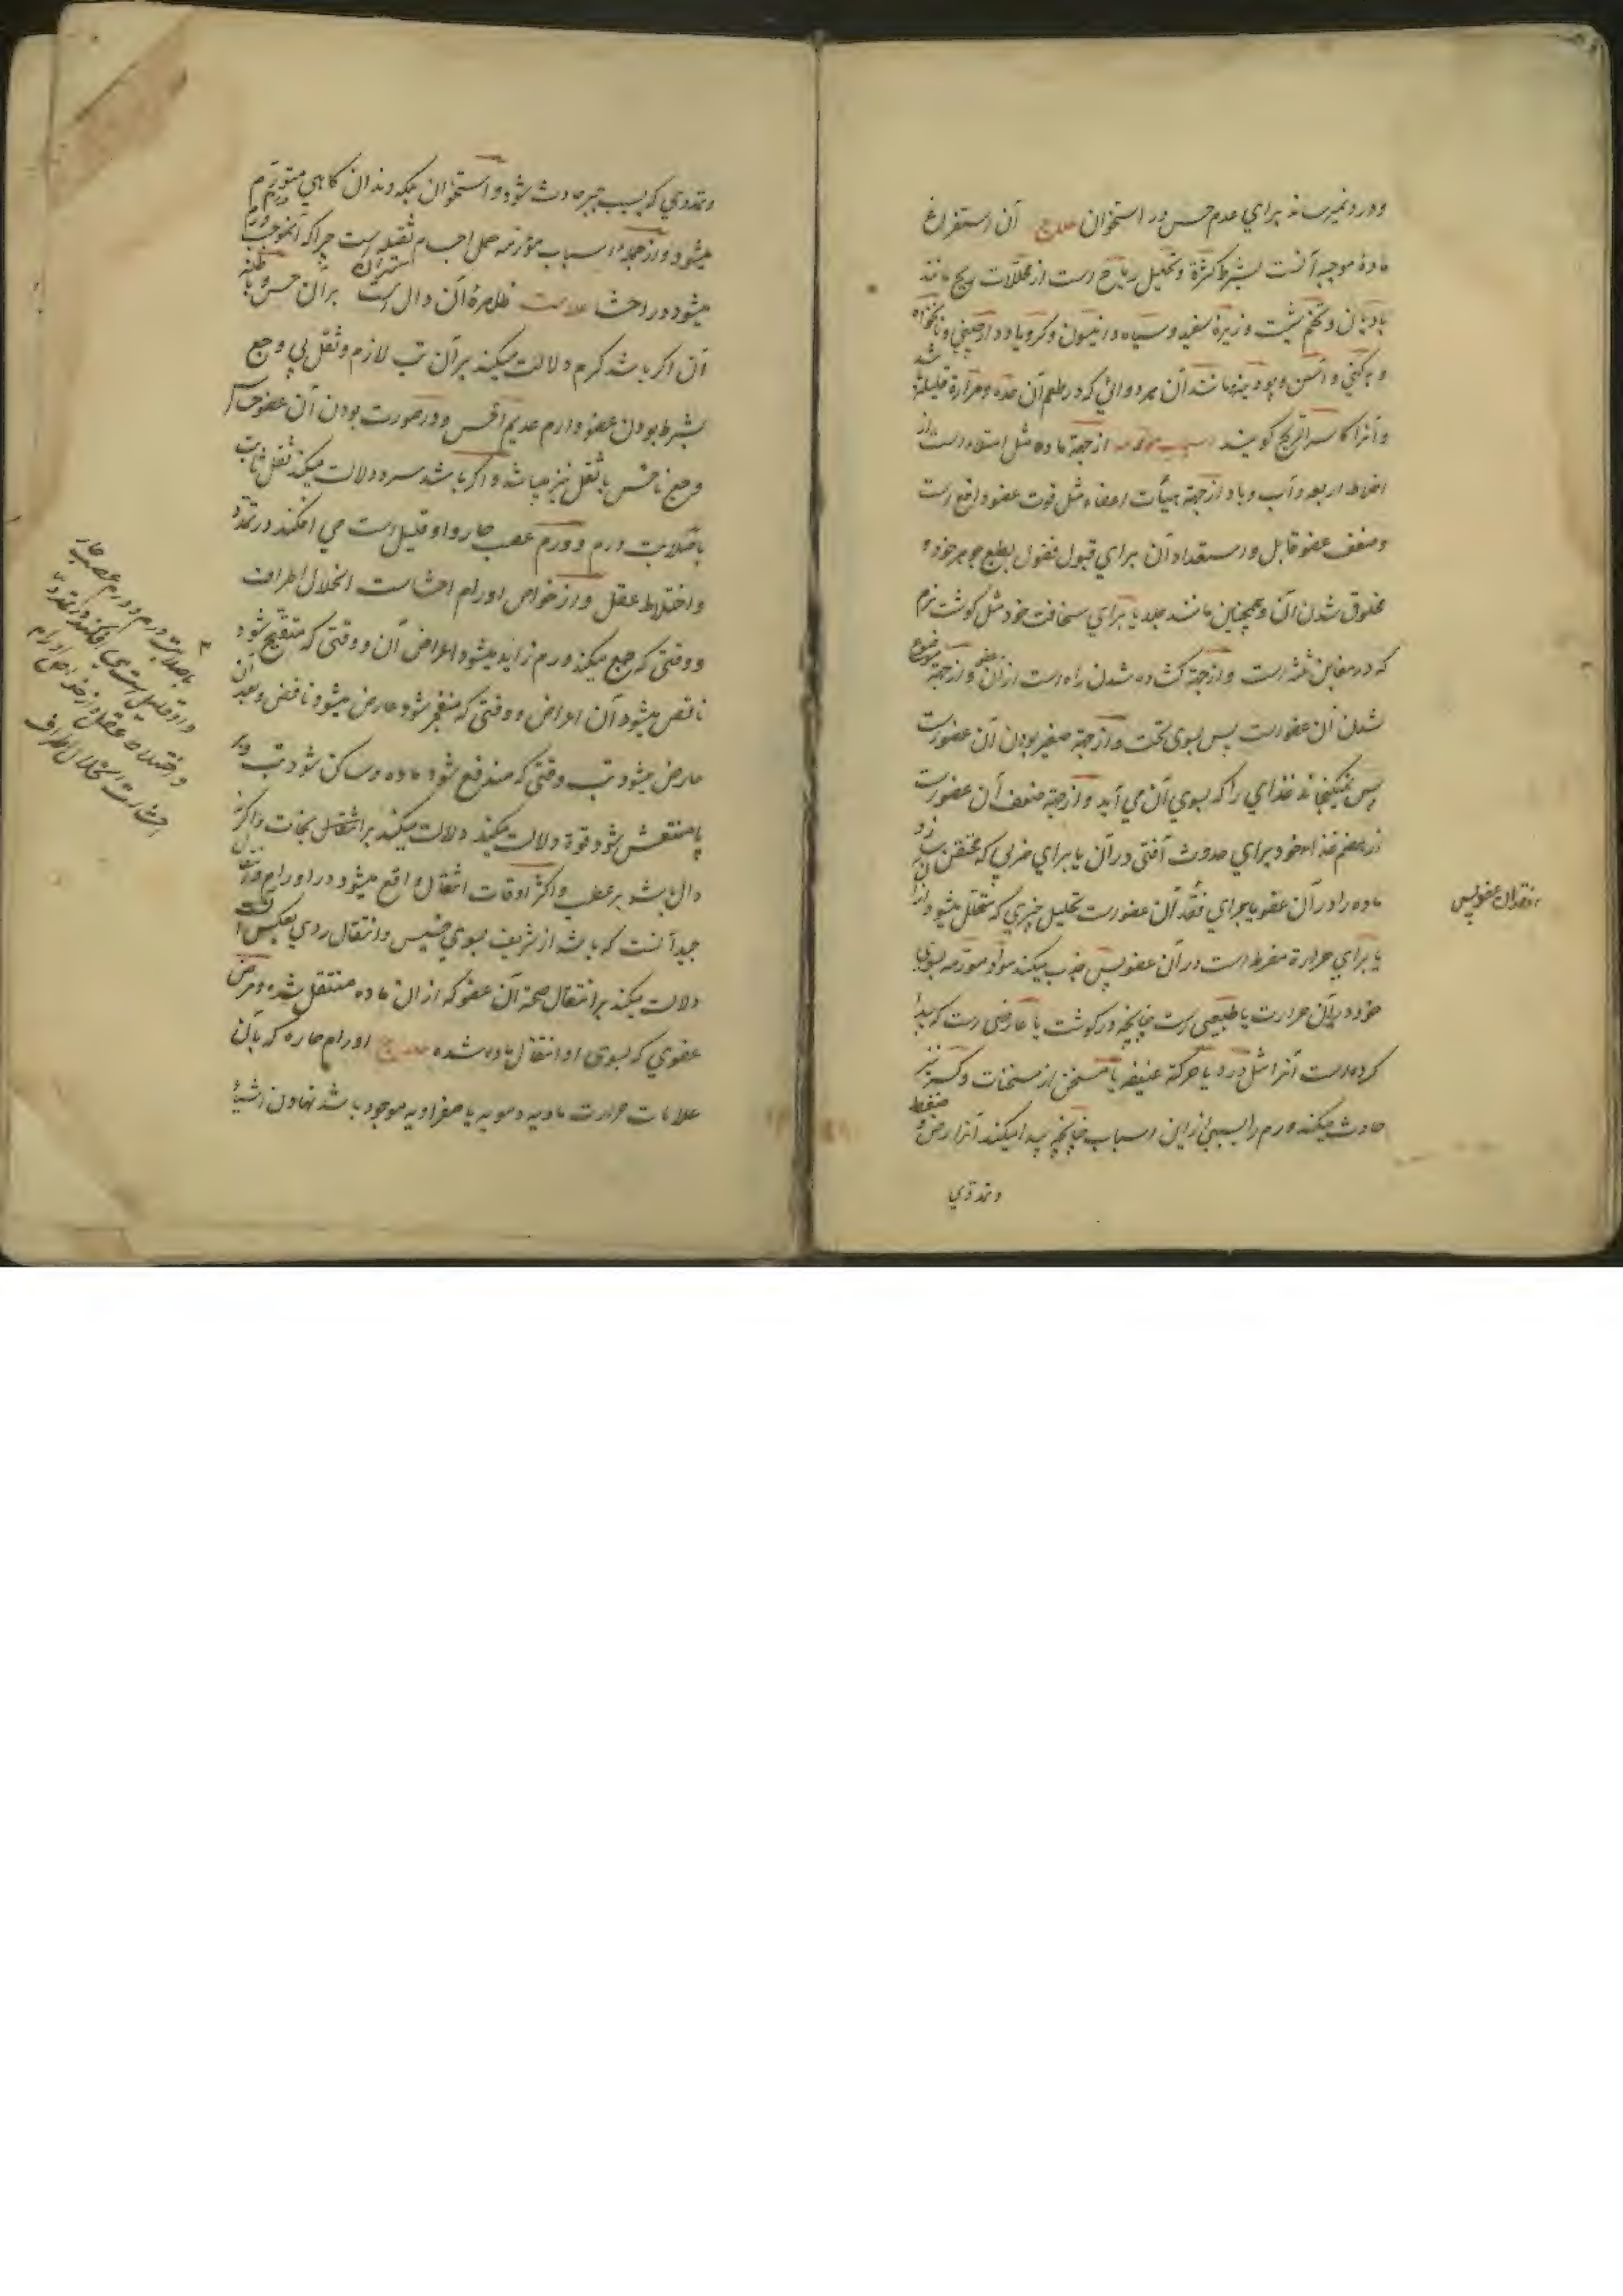 و درد نمیرساند برای عدم حس در استخوان علاج آن استفراغ
ماده موجبه آنست بشرط کثرة و تحلیل ریاح است از محللات ریح مانند
بادیان و تخم شبت و زیره سفید و سیاه و انیسون و کرویا و دارصینی و نانخواه
و آنرا کاسر الریح کویند اسباب مورمه از جهة ماده مثل امتلاء است از
اخلاط اربعه و آب و باد از جهة هیأت اعضاء مثل قوت عضو دافع است
و ضعف عضو قابل و استعداد آن برای قبول فضول بطبع جوهر خود و
مخلوق شدن آن و همچنین مانند جلد یا برای سخافت خود مثل کوشت نرم
که در مغابن ثلثه است و از جهة کشاده شدن راه است از آن عضو و از جهة موضوع
شدن آن عضو است پس بسوی تحت و از جهة صغیر بودن آن عضو است
پس نمیکنجاند غذای را که بسوی آن می آید و از جهة ضعف آن عضو است
از هضم غذاء خود برای حدوث آفتی در آن یا برای ضربی که محتقن
ماده را در آن عضو یا برای فقد آن عضو است تحلیل چیزی که متحلل میشود از
یا برای حرارة مفرط است در آن عضو پس جذب میکند مواد مورمه بسوی
خود و این حرارت یا طبیعی است چنانچه در کوشت یا عارضی است که پیدا
کرده است آنرا مثل درد یا حرکة عنیفه یا مسخن از مسخنات و کسر نیز
حادث میکند ورم را بسببی از این اسباب چنانچه پیدا میکند آنرا رض و ضغط
و تمددی
فقدان عضو پس
و تمددی که بسبب جبر حادث شود و استخوان بلکه دندان کاهی متورم
میشود و از جمله اسباب مورمه حمل اجسام ثقیله است چراکه آن موجب ورم
میشود در احشا علامت ظاهره آن دال است بر آن حس و باطنه
آن اکر باشد کرم دلالت میکند بر آن تب لازم و ثقل بی وجع
بشرط بودن عضو وارم عدیم الحس و در صورت بودن آن عضو حساس
وجع ناخس با ثقل نیز میباشد و اکر باشد سرد دلالت میکند ثقل ثابت
با صلابت ورم و ورم عصب حار و او قلیل است می افکند در تمدد
و اختلاط عقل و از خواص اورام احشاست انحلال اطراف
و وقتی که جمع میکند ورم زاید میشود اعراض آن و وقتی که متقیح شود
ناقص میشود آن اعراض و وقتی که منفجر شود عارض میشود نافض و بعد آن
عارض میشود تب وقتی که مندفع شود ماده و ساکن شود تب
یا منتعش شود قوة دلالت میکند دلالت میکند بر انتقال بنجات و اکر نه
دال باشد بر عطب و اکثر اوقات انتقال واقع میشود در اورام
جید آنست که باشد از شریف بسوی خسیس و انتقال ردی بعکس است
دلالت میکند بر انتقال صحة آن عضو که از آن ماده منتقل شده و مرض
عضوی که بسوی او انتقال ماده شده علاج اورام حاره که بآن
علامات حرارت مادیه دمویه یا صفراویه موجود باشد نهادن اشیاء
با صلابت ورم و ورم عصب حار
و او قلیل است می افکند در تمدد
و اختلاط عقل و از خواص اورام
احشاست انحلال اطراف